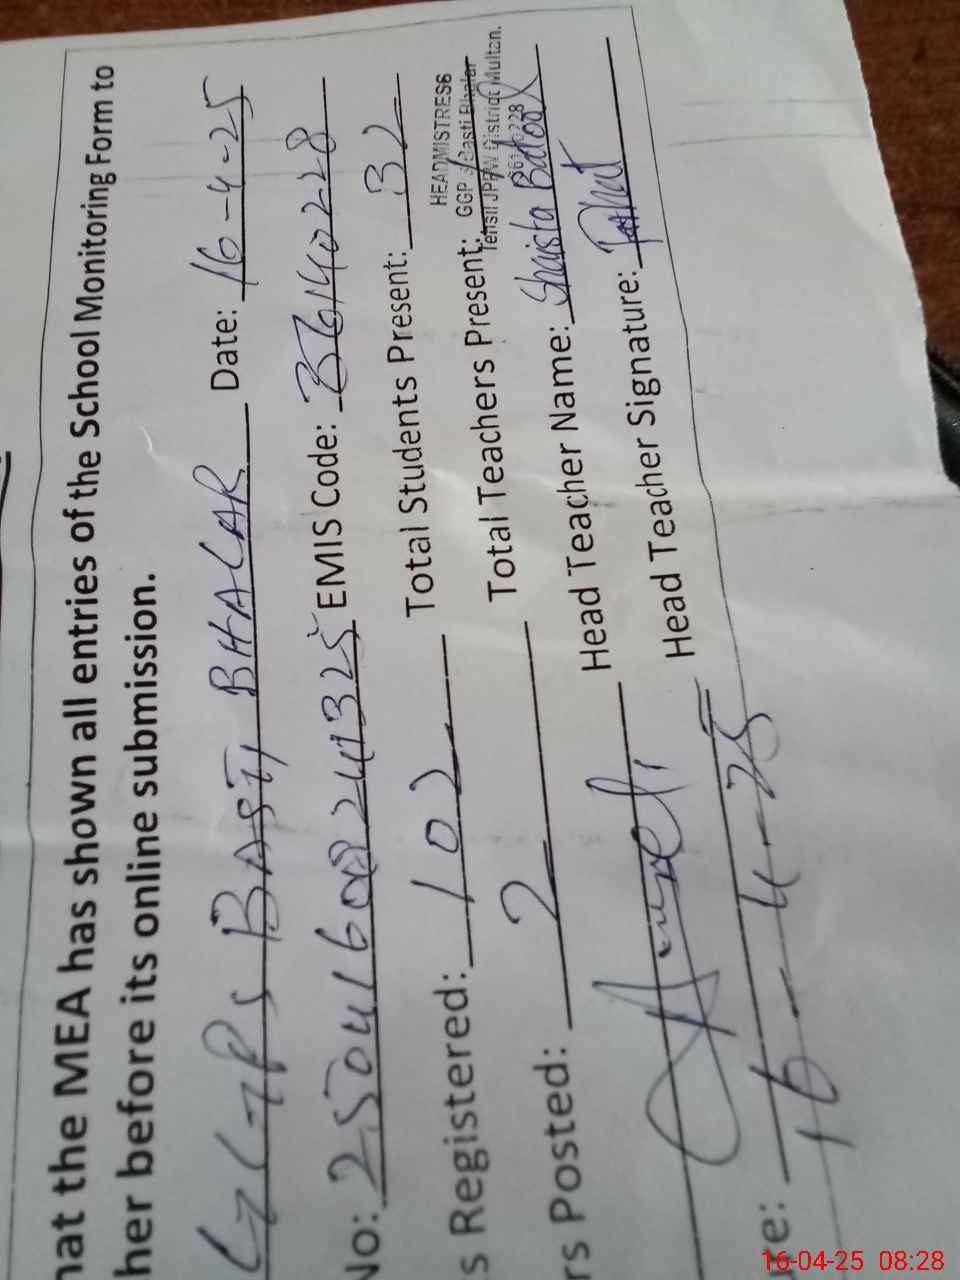 hat the MEA has shown all entries of the School Monitoring Form to
her before its online submission.
GGPS BASTI BHALAR Date: 16-4-25
No: EMIS Code: 36140228
s Registered: 102 Total Students Present: 32
rs Posted: 2 Total Teachers Present:
HEADMISTRESS
GGP S Basti Bhalar
District Multan.
Head Teacher Name: Shaista Batool
Head Teacher Signature:
re: 16-4-25
16-04-25 08:28